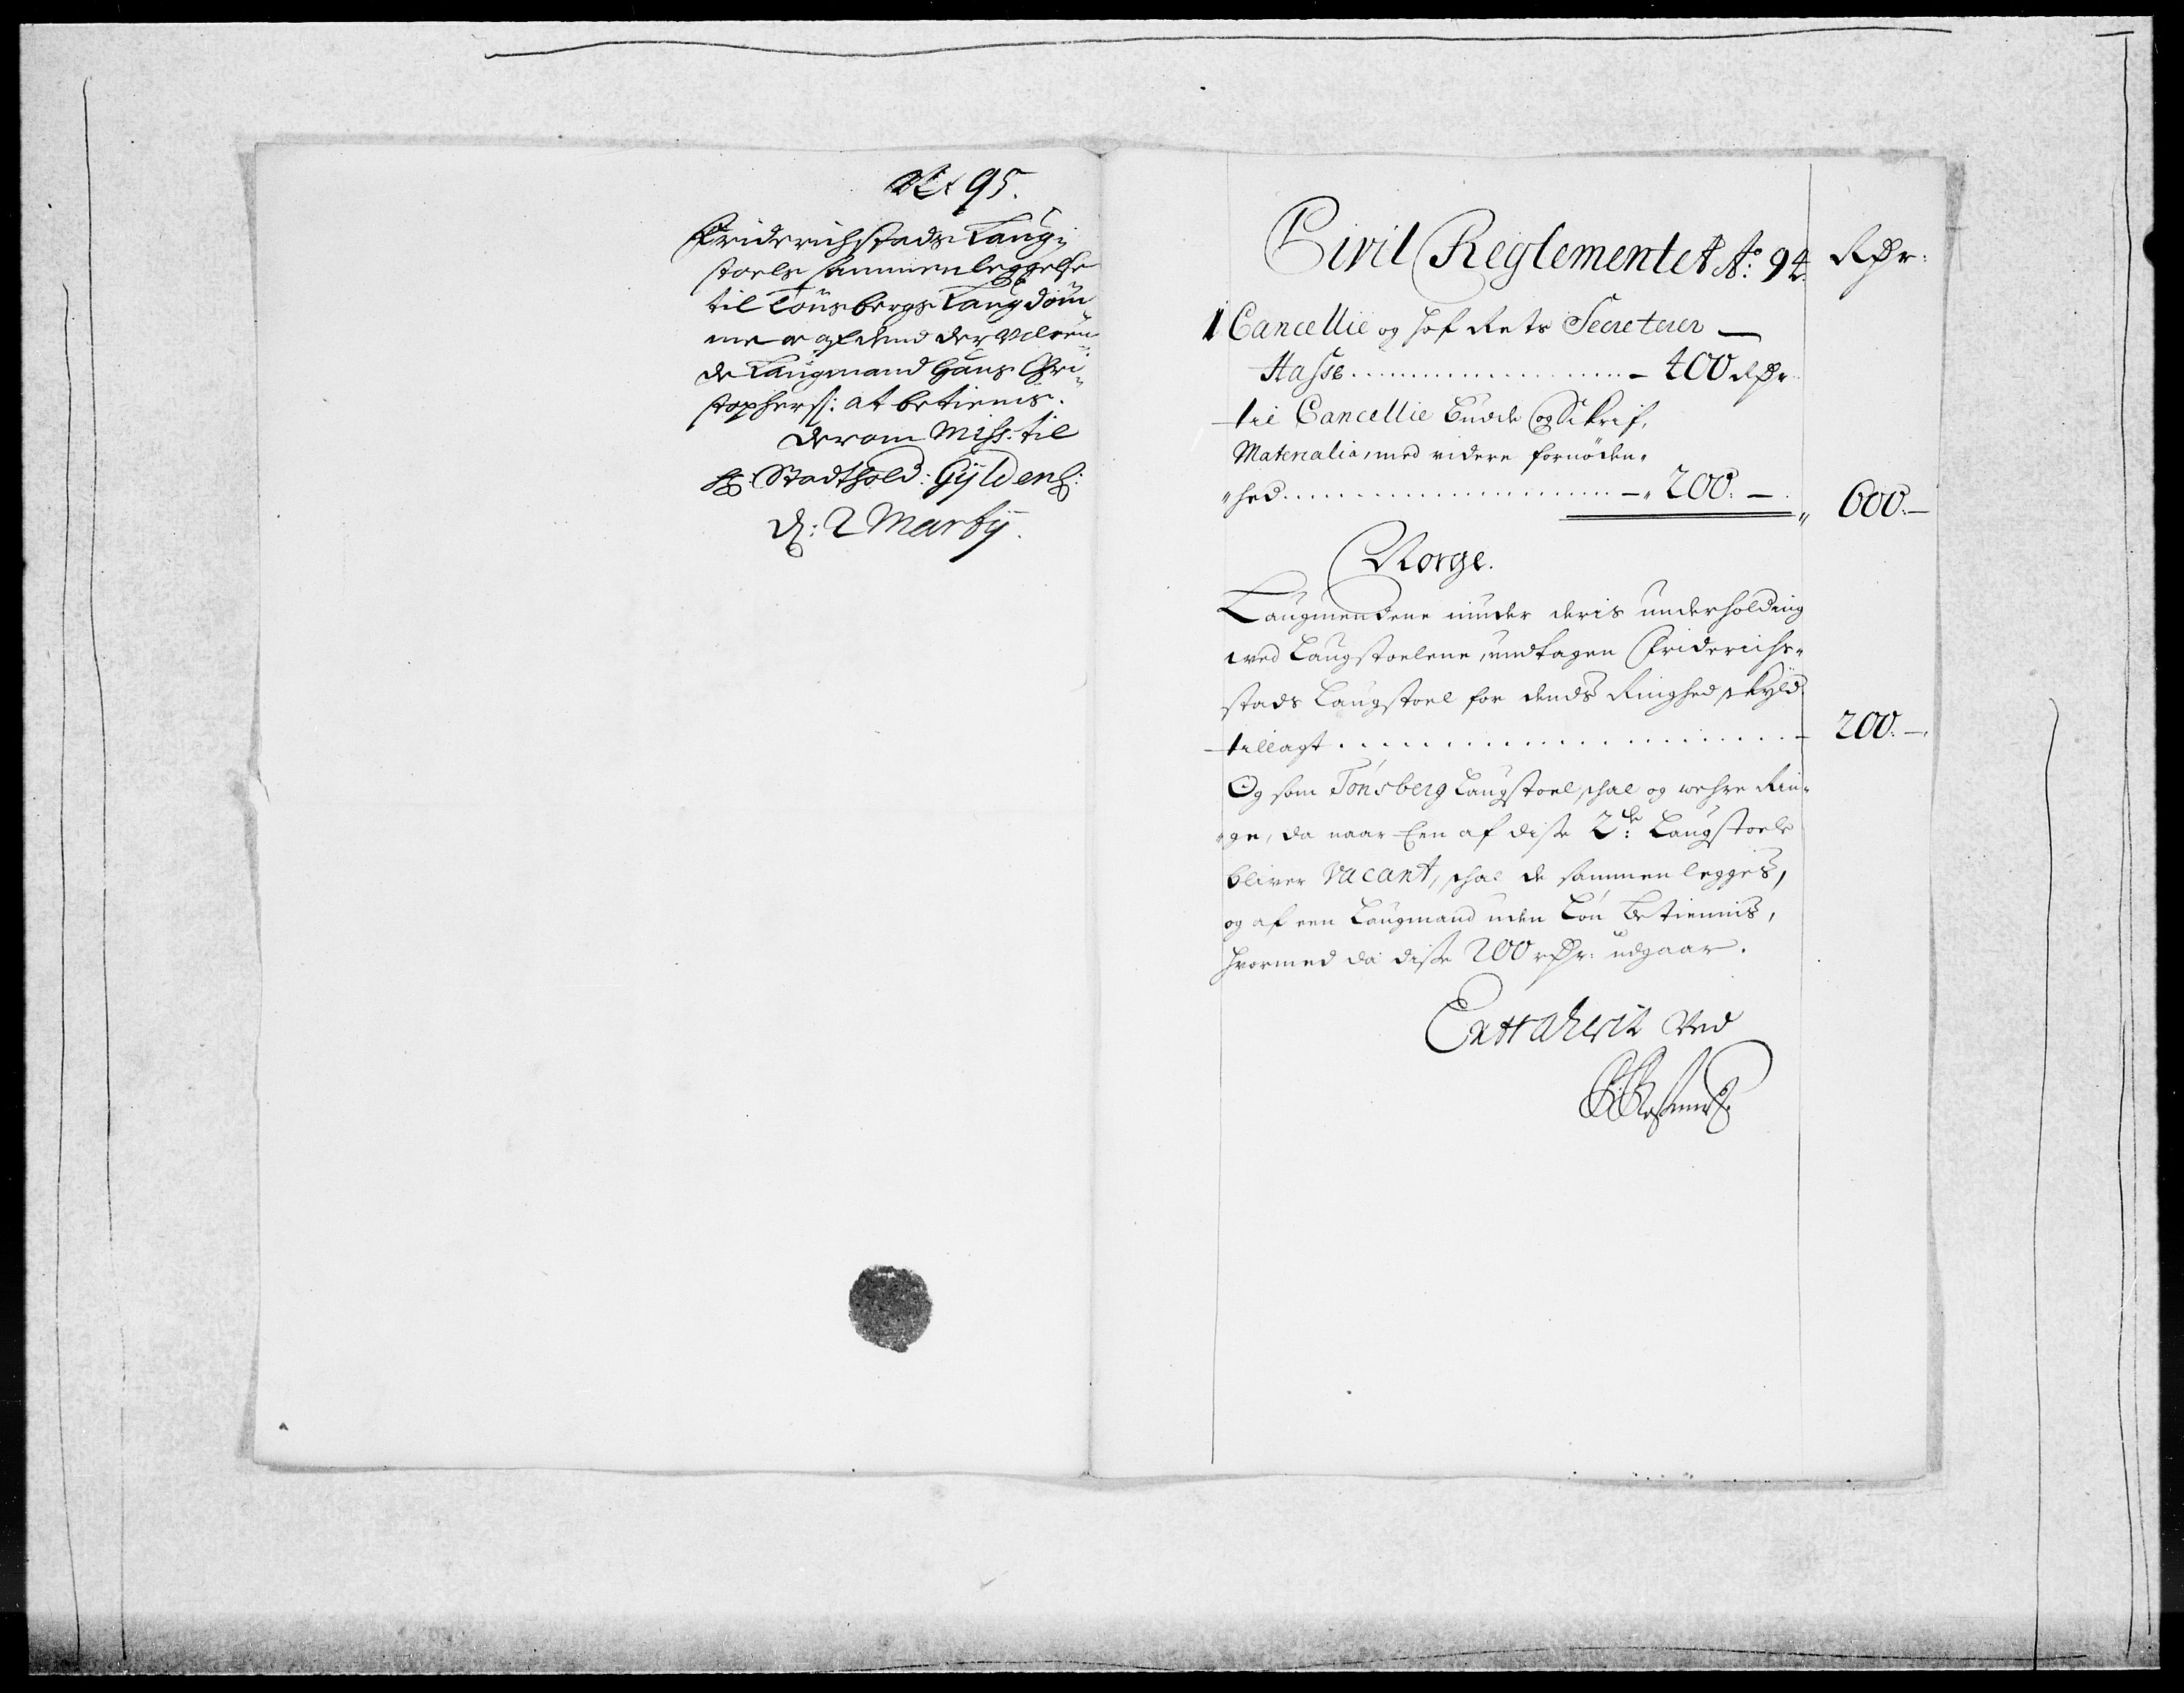 No 95.
Friderichstads Laug-
stoels sammenleggelse
til Tönsbergs Laugdöm
me oc af dend der værren
de Laugmand Hans Chri-
stophers: at betienis.
Derom Miss: til
H: Stadthold: Gyldenl:
d: 2 Martij.
Civil Reglementet Ao: 94. Rdr:
1 Cancellie og Hof Rets Secreterer —
Hasse — 400 Rdr
til Cancellie Budde og Skrif,
Materialia, med videre fornöden-
-hed — 200. — 600. —
Norge.
Laugmendene niuder deris underholding
ved Laugstoelene, undtagen Friderichs-
stads Laugstoel for dends Ringhed skyld
tillagt — 200. —
Og som Tönsberg Laugstoel schal og wehre Rin-
-ge, da naar Een af disse 2de: Laugstoele
bliver vacant, schal de sammen legges,
og af een Laugmand uden Lön Betiennis,
hvormed da disse 200 rdr: udgaar.
Extraherit ved